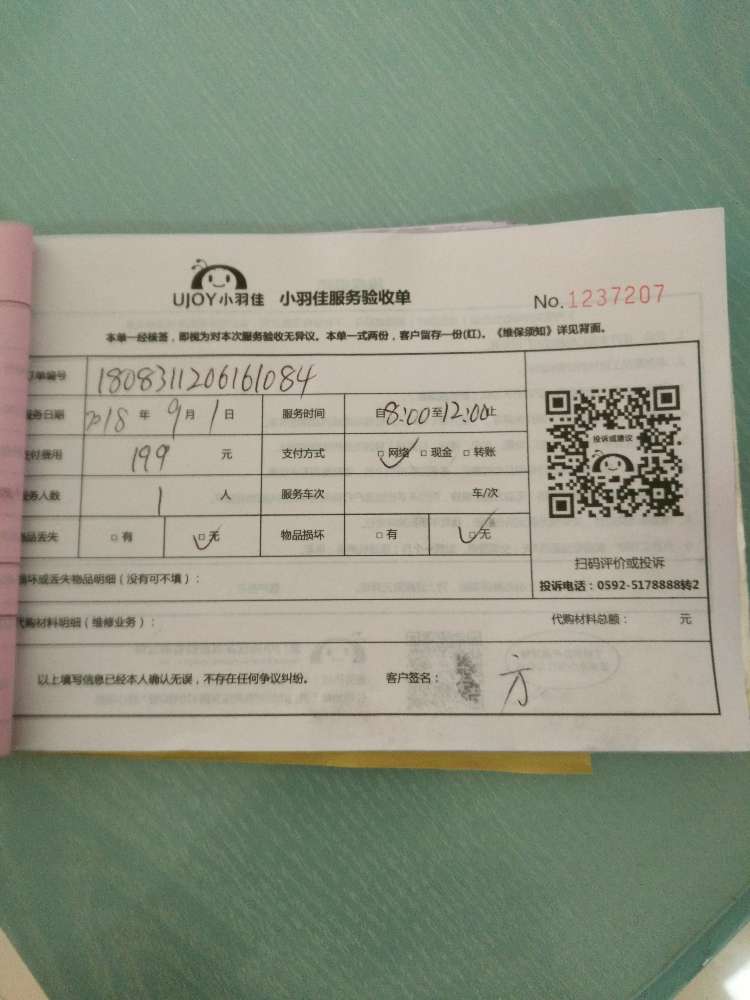 UJOY小羽佳 小羽佳服务验收单 No.1237207
本单一经核签，即视为对本次服务验收无异议。本单一式两份，客户留存一份(红)。《维保须知》详见背面。
订单编号 1808311206161084
服务日期 2018 年 9 月 1 日 服务时间 自8:00至12:00止
支付费用 199 元 支付方式 □网络 □现金 □转账
服务人数 1 人 服务车次 车/次
物品丢失 □有 □无 物品损坏 □有 □无
投诉或建议
扫码评价或投诉
投诉电话：0592-5178888转2
损坏或丢失物品明细（没有可不填）：
代购材料明细（维修业务）： 代购材料总额： 元
以上填写信息已经本人确认无误，不存在任何争议纠纷。 客户签名： 方